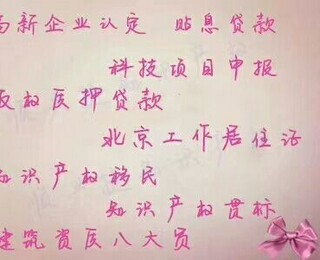 高新企业认定 贴息贷款
科技项目申报
股权质押贷款
北京工作居住证
知识产权移民
知识产权贯标
建筑资质八大员